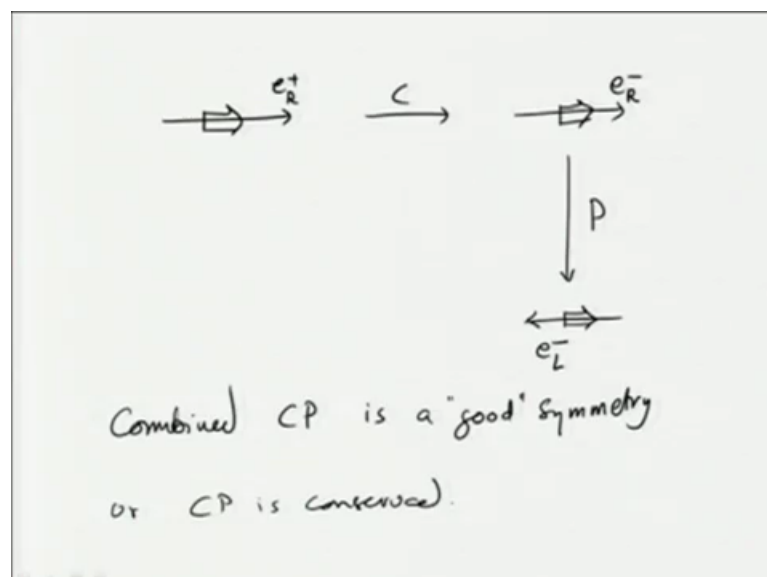 e⁺_R C e⁻_R
P
e⁻_L
Combined CP is a "good" symmetry
or CP is conserved.